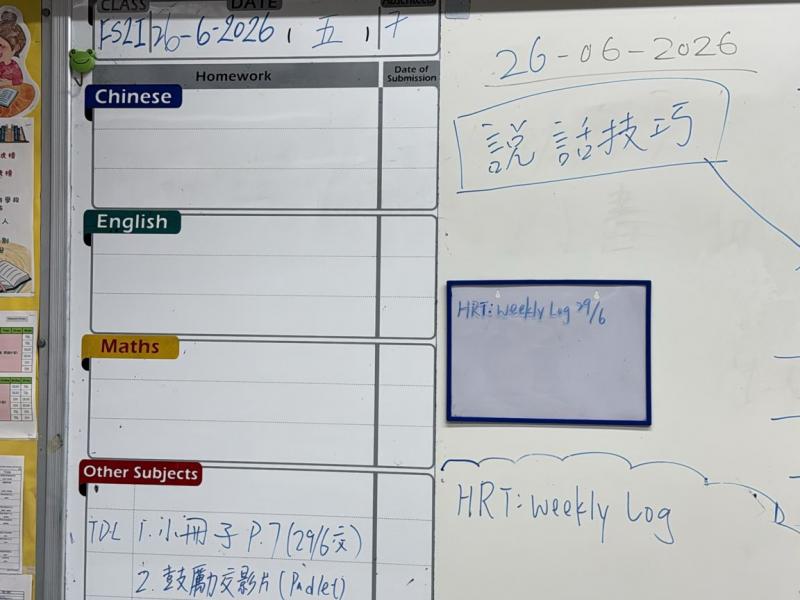 CLASS DATE
FS2I 26-6-2026, 五, 7
Homework Date of Submission
Chinese
English
Maths
Other Subjects
TDL 1. 小冊子 P.7 (29/6交)
2. 鼓勵交影片 (Padlet)
26-06-2026
說話技巧
HRT: weekly Log 29/6
HRT: weekly Log